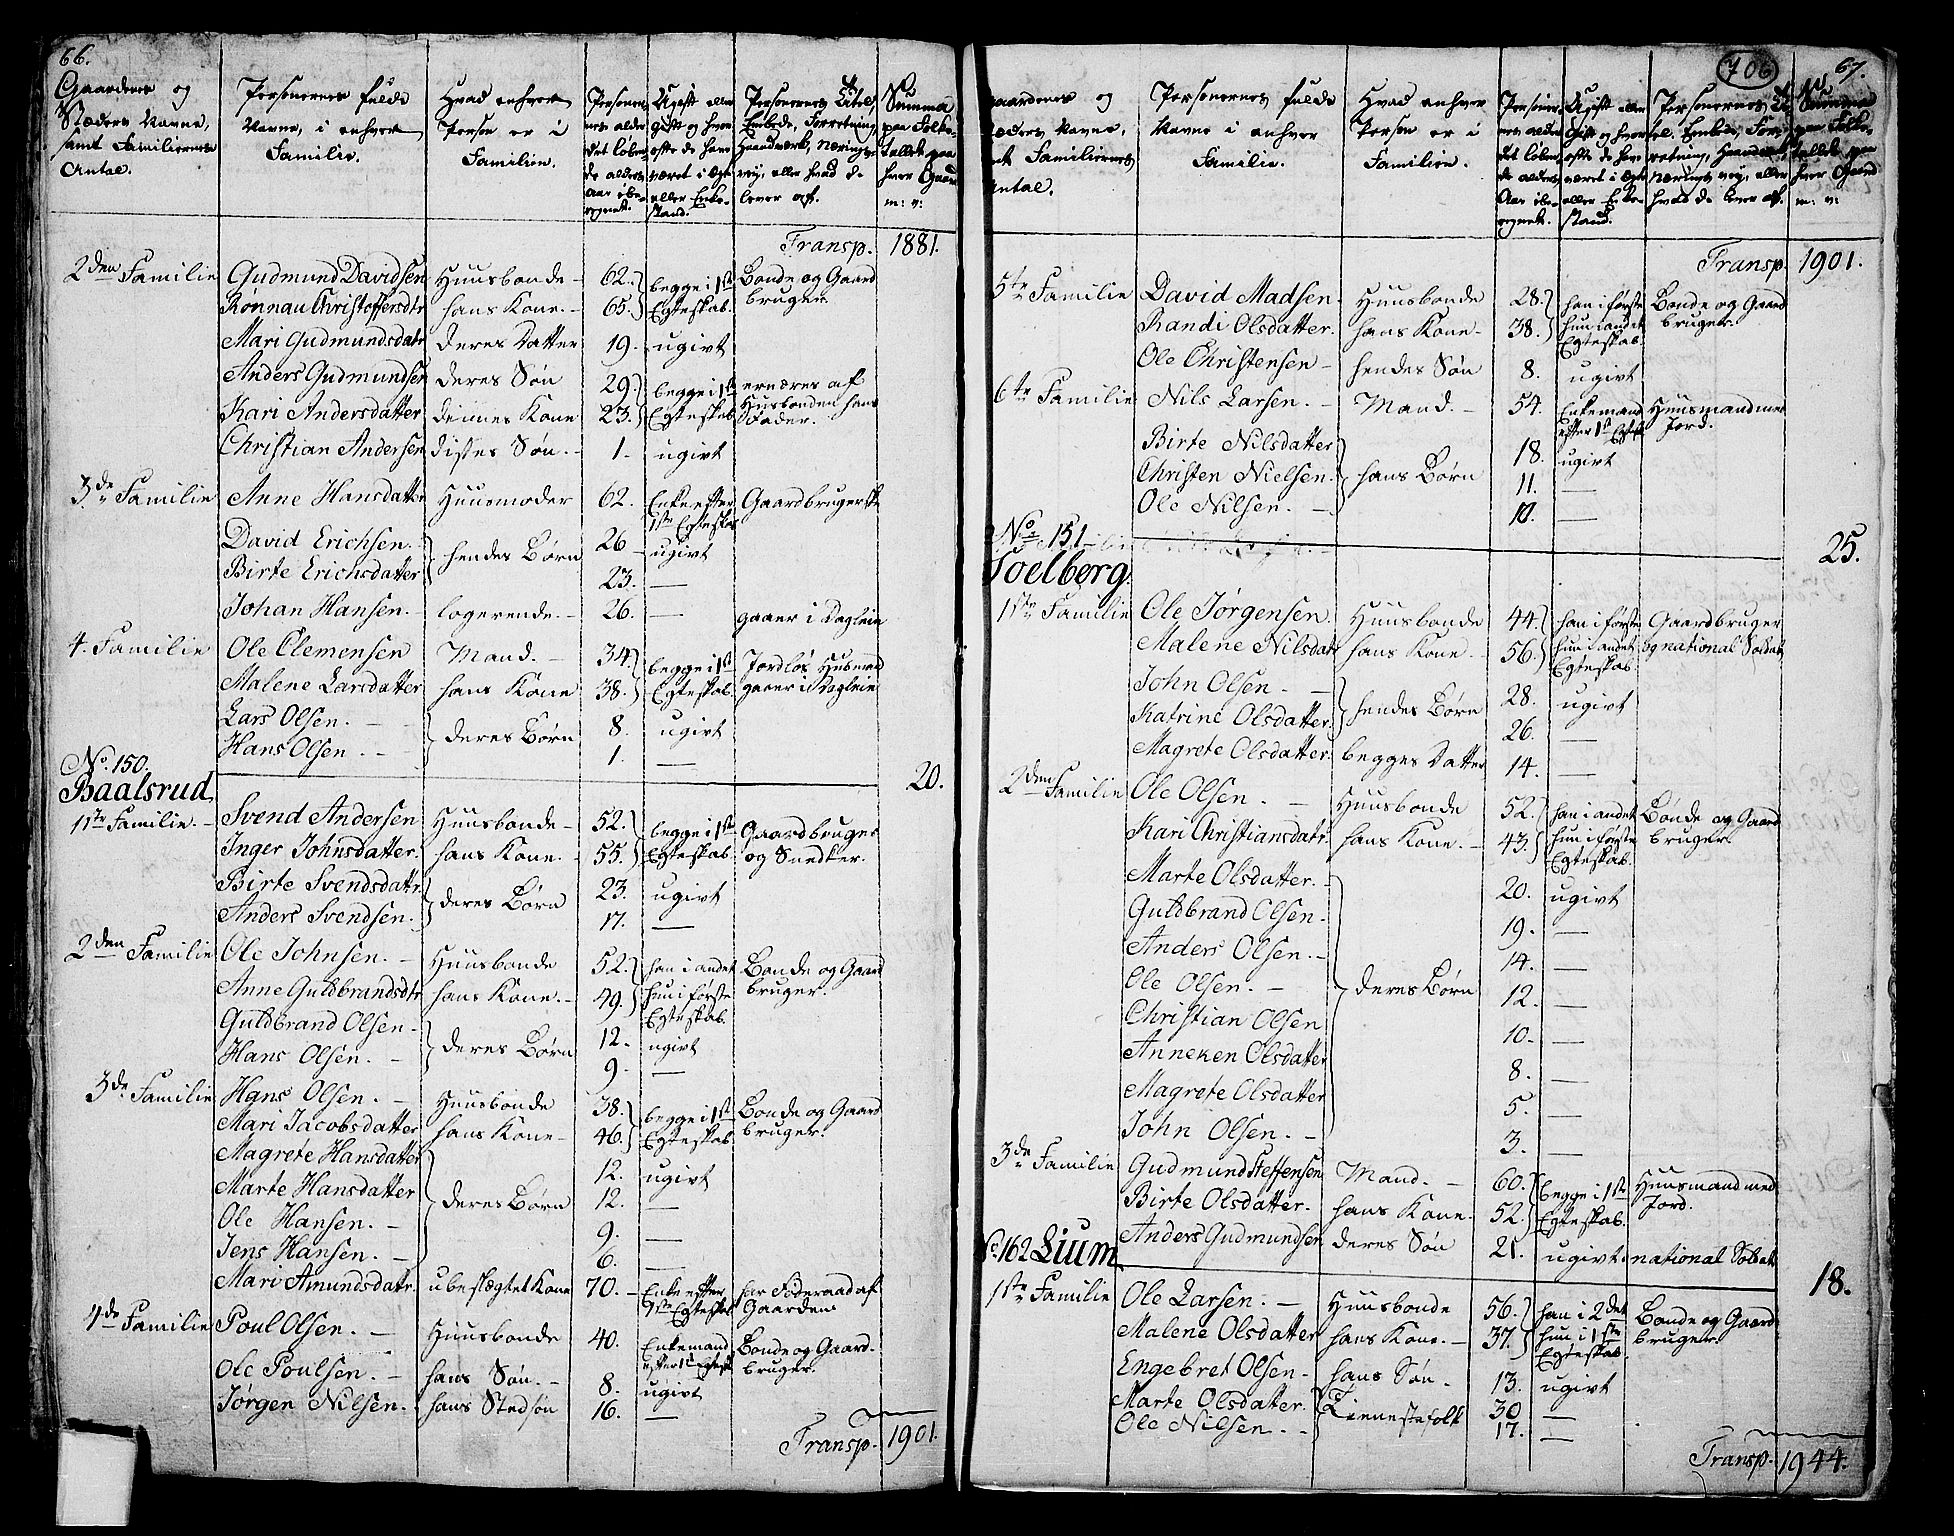 66.
Gaardenes og Stædernes Navne, samt Familiernes Antal.
Personernes fulde Navne, i enhver Familie.
Hvad enhver Person er i Familien.
Personernes alder det løbende alders Aar iberegnet.
Ugift eller Gift og hvor ofte de have været i Egte eller Enkestand.
Personernes Titel, Embede, Forretning, Haandværk, Næringsvej, eller hvad de lever af.
Summa paa Folketallet paa hver Gaard
m: v:
Transp. 1881.
2den Familie Gudmund Davidsen Huusbonde - 62. begge i 1ste Bonde og Gaard
Rønnau Christoffersdtr hans Kone. - 65. Egteskab. bruger
Mari Gudmundsdatr deres Datter 19. ugivt
Anders Gudmundsen deres Søn 29. begge i 1ste ernæres af
Kari Andersdatter dennes Kone 23. Egteskab Husbonden hans Fader.
Christian Andersen disses Søn. - 1. ugivt
3de Familie Anne Hansdatter Huusmoder 62. Enke efter 1ste Egteskab Gaardbrugerske
David Erichsen. 26 - ugivt
Birte Erichsdatter } hendes Børn 23. —
Johan Hansen. - logerende - 26. — gaaer i Dagleie
4. Familie Ole Clemensen Mand. - 34. begge i 1ste Jordløs Husmand
Malene Larsdatter hans Kone 38. Egteskab. gaaer i Dagleie
Lars Olsen. - 8. ugivt
Hans Olsen. - } deres Børn 1. —
No. 150.
Baalsrud 20.
1ste Familie. - Svend Andersen Huusbonde - 52. begge i 1ste Gaardbruger
Inger Johnsdatter. hans Kone. - 55. Egteskab. og Snedker.
Birte Svendsdatr. 23. ugivt
Anders Svendsen. } deres Børn 17. —
2den Familie Ole Johnsen. - Huusbonde 52. han i andet Bonde og Gaard
Anne Guldbrandsdtr hans Kone. - 49. hun i første Egteskab. bruger.
Guldbrand Olsen - 12. ugivt
Hans Olsen. - } deres Børn 9. —
3de Familie Hans Olsen. - Huusbonde 38. begge i 1ste Bonde og Gaard
Mari Jacobsdatter hans Kone - 46. Egteskab. bruger.
Magrete Hansdatter 12. ugivt
Marte Hansdatter } deres Børn 12. —
Ole Hansen. - 9. —
Jens Hansen. - 6. —
Mari Amundsdatr. ubeslægtet Kone 70. - Enke efter 1ste Egteskab har Føderaad af Gaarden
4de Familie Poul Olsen. - Huusbonde 40. Enkemand efter 1st Egtesk. Bonde og Gaard-bruger.
Ole Poulsen. - hans Søn. - 8. ugivt
Jørgen Nilsen. hans Stedsøn 16. —
Transp. 1901.
706
67.
Gaardenes og Stædernes Navne, samt Familiernes Antal.
Personernes fulde Navne i enhver Familie.
Hvad enhver Person er i Familien.
Personernes alder det løbende alders Aar iberegnet.
Ugift eller Gift og hvor ofte de have været i Egte eller Enkestand.
Personernes Titel. Embede, Forretning, Haandverk, Næringsvej, eller hvad de lever af.
Summa paa Folketallet paa hver Gaard
m: v:
Transp. 1901.
5te Familie David Madsen. Huusbonde 28. han i første Bonde og Gaard
Randi Olsdatter. hans Kone - 38. hun i andet Egteskab. bruger.
Ole Christensen - hendes Søn 8. ugivt
6te Familie Nils Larsen. - Mand. - 54. Enkemand efter 1st Egtesk Huusmand med Jord.
Birte Nilsdatter 18. ugivt
Christen Nielsen. } hans Børn 11. —
Ole Nilsen. - 10. —
No. 151 25.
Toelberg.
1ste Familie Ole Jørgensen Huusbonde 44. han i første Gaardbruger
Malene Nilsdatr hans Kone. - 56. hun i andet Egteskab og national Soldat
John Olsen. - 28. ugivt
Katrine Olsdatter. } hendes Børn 26. —
Magrete Olsdatter. begges Datter 14. —
2den Familie Ole Olsen. - Huusbonde 52. han i andet Bonde og Gaard
Kari Christiansdatr. hans Kone. - 43. hun i første Egteskab. bruger.
Marte Olsdatter. - 20. ugivt
Guldbrand Olsen. 19. —
Anders Olsen. - 14. —
Ole Olsen. - } deres Børn 12. —
Christian Olsen 10. —
Anneken Olsdatter 8. —
Magrete Olsdatter 5. —
John Olsen. - 3. —
3de Familie Gudmund Steffensen Mand. - 60. begge i 1ste Huusmand med
Birte Olsdatter. hans Kone. 52. Egteskab. Jord.
Anders Gudmundsen deres Søn 21. ugivt national Soldat
No. 162 Lium 18.
1ste Familie Ole Larsen. - Huusbonde 56. han i 2det Bonde og Gaard
Malene Olsdatter hans Kone. - 37. hun i 1ste Egteskab. bruger.
Engebret Olsen - hans Søn. 13. ugivt
Marte Olsdatter. } Tienestefolk 30 —
Ole Nilsen. - 17. —
Transp. 1944.